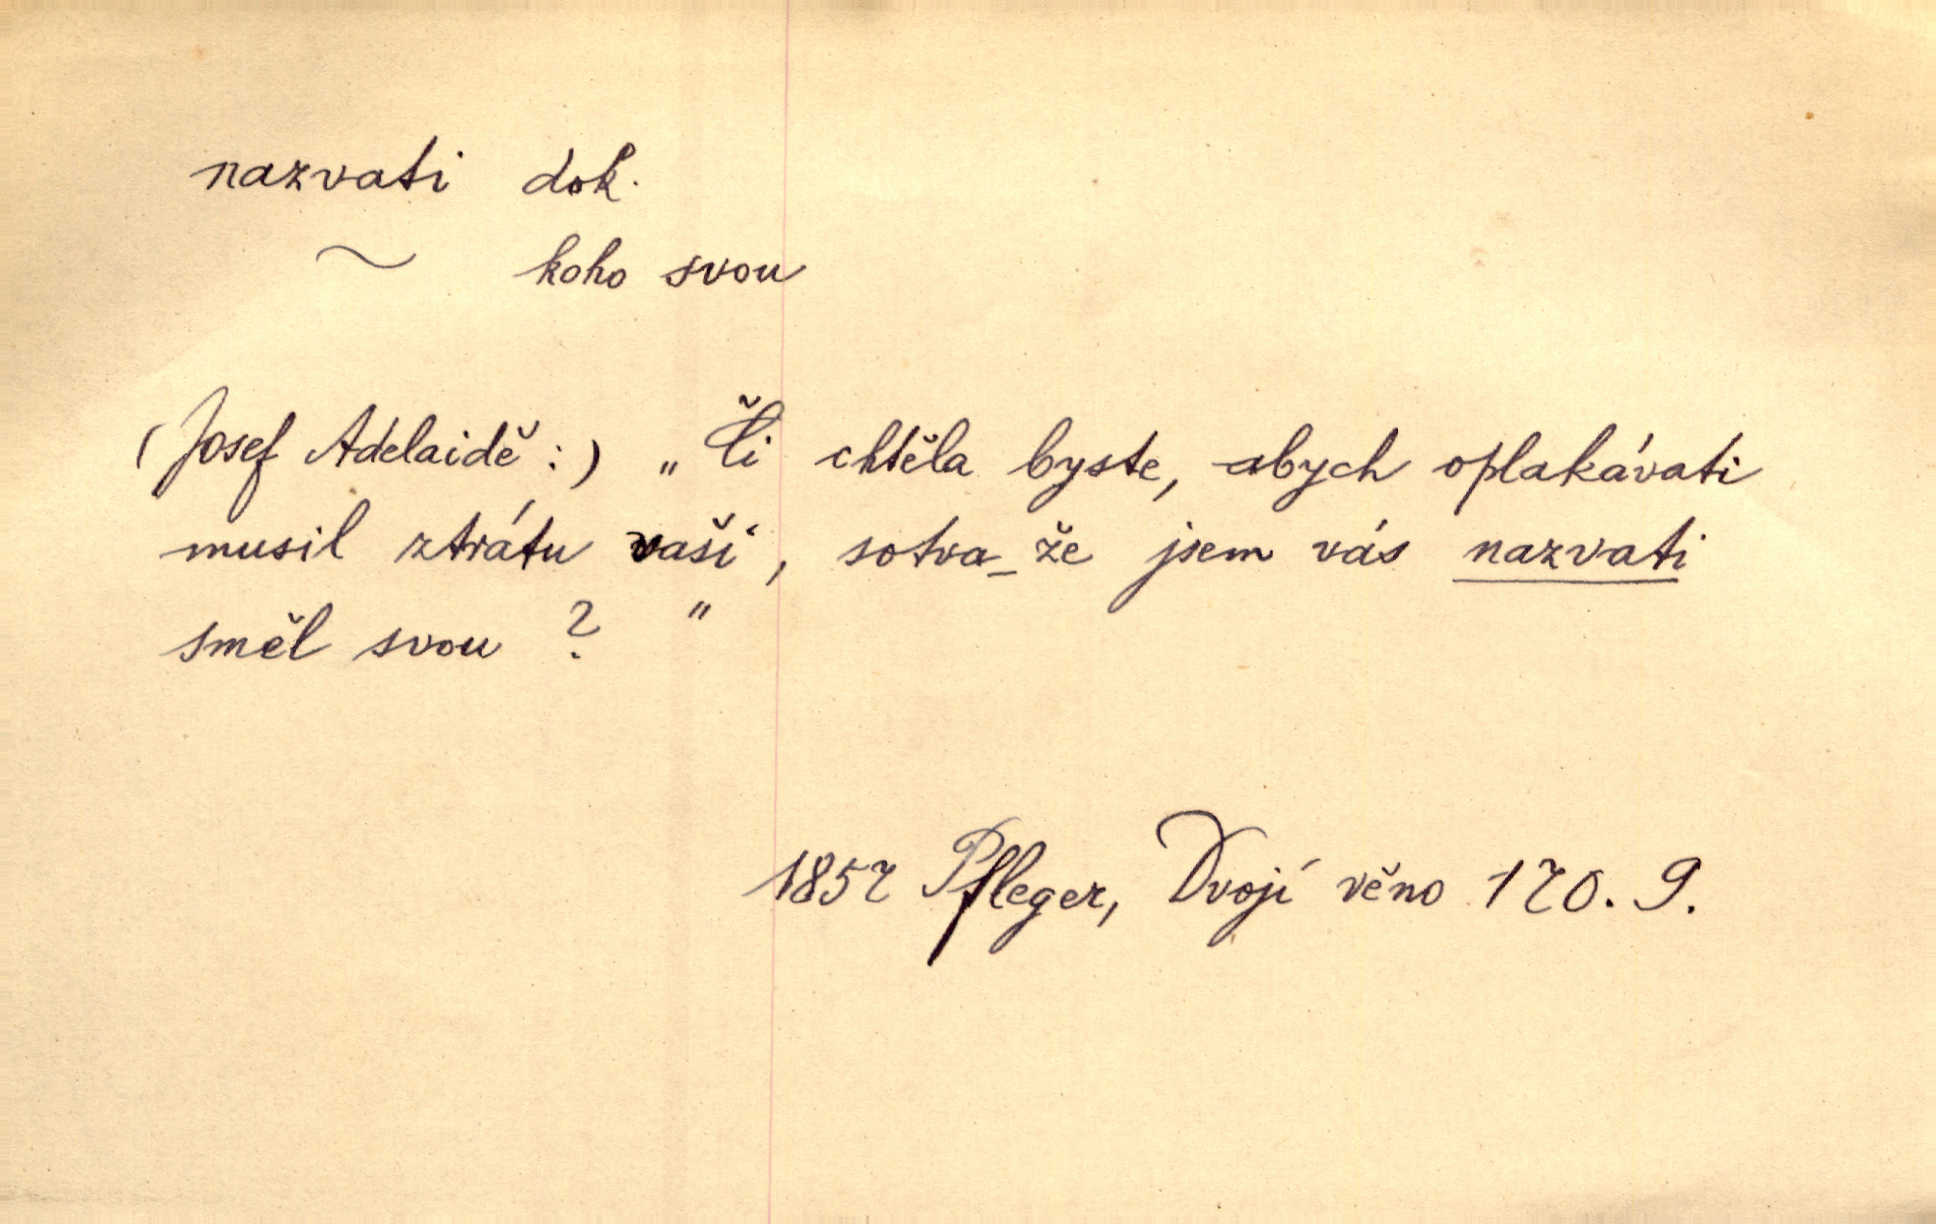 nazvati dok.
~ koho svou
(Josef Adelaidě:) „Či chtěla byste, abych oplakávati
musil ztrátu vaši, sotva_že jsem vás nazvati
směl svou?"
1857 Pfleger, Dvojí věno 170. 9.